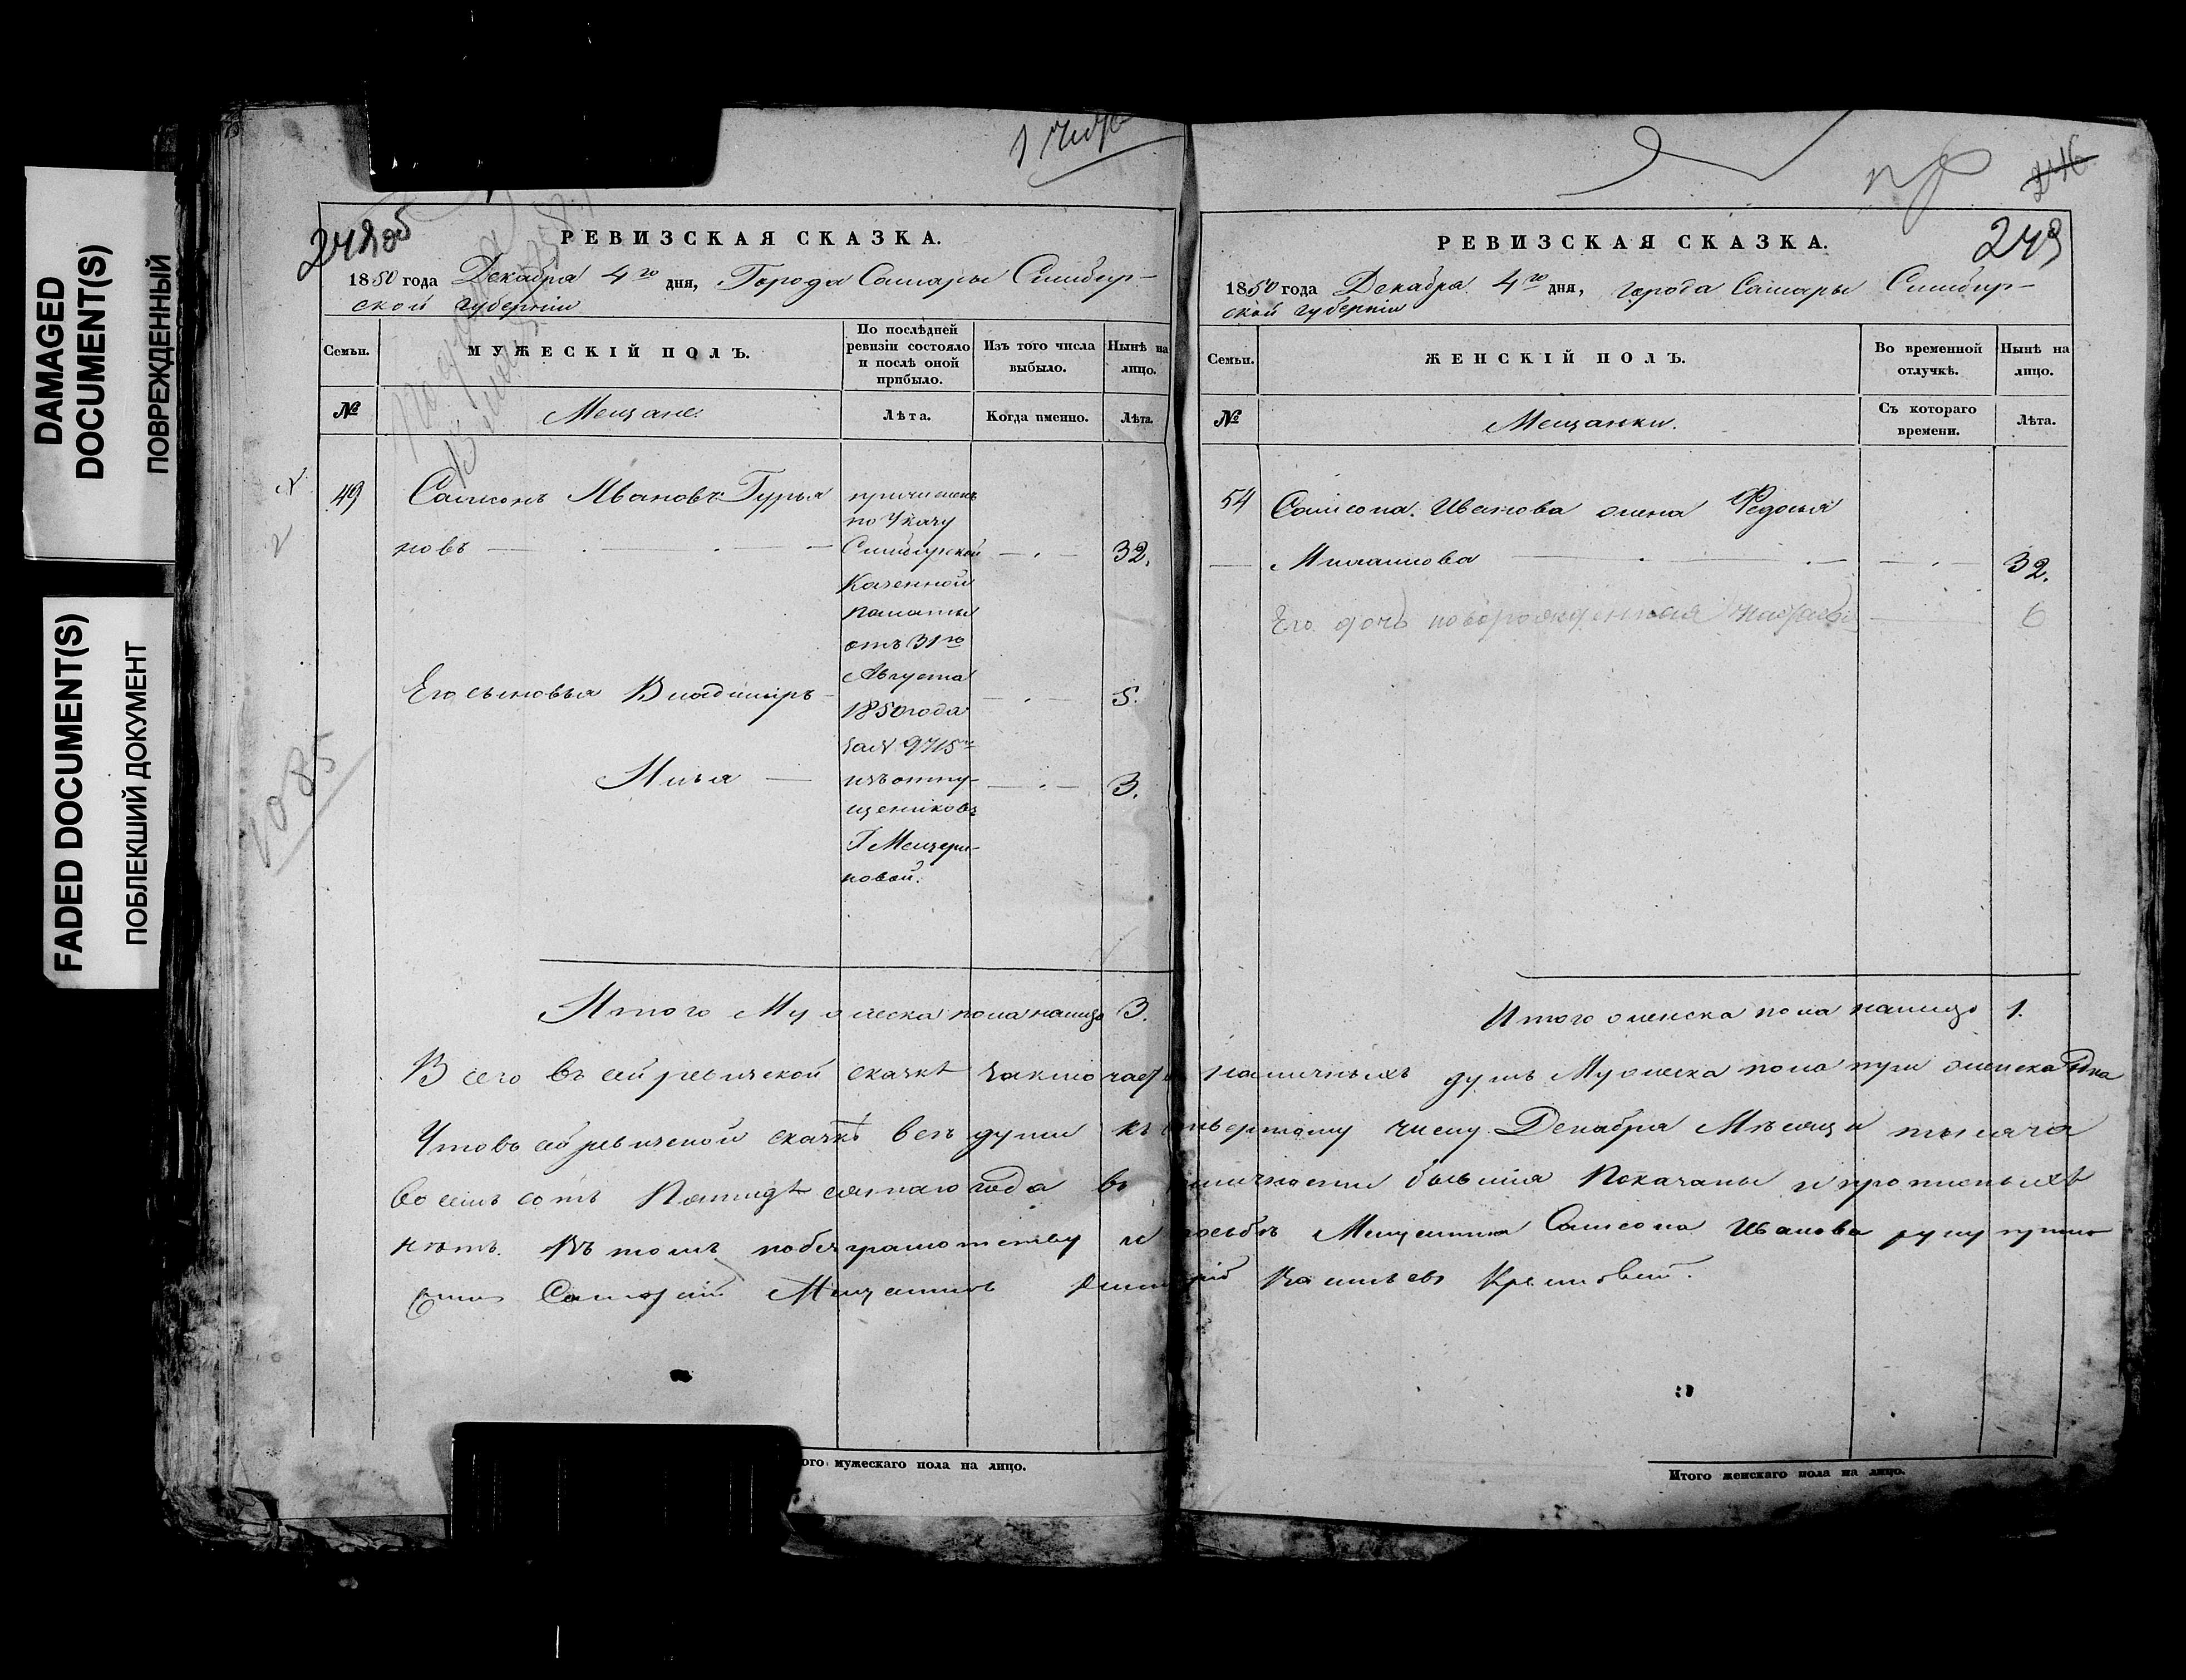 DAMAGED
DOCUMENT(S)
ПОВРЕЖДЕННЫЙ
FADED DOCUMENT(S)
ПОБЛЕКШИЙ ДОКУМЕНТ
248об
РЕВИЗСКАЯ СКАЗКА.
1850 года Декабря 4го дня, Города Самары Симбир-
ской губернiи
Семьи.
МУЖЕСКIЙ ПОЛЪ.
По послѣдней
ревизiи состояло
и послѣ оной
прибыло.
Изъ того числа
выбыло.
Нынѣ на
лицо.
№
Мещане.
Лѣта.
Когда именно.
Лѣта.
49
Самсонъ Ивановъ Гурья
новъ
32.
причисленъ
по Указу
Симбирской
Казенной
палаты
отъ 31го
Августа
1850 года
за № 9715мъ
изъ отпу-
щениковъ
Г Мещери-
новой.
Его сыновья Владимiръ
5.
Илья
3.
1085
Итого Мужеска пола налицо 3.
246
249
РЕВИЗСКАЯ СКАЗКА.
1850 года Декабря 4го дня, города Самары Симбир-
ской губернiи
Семьи.
ЖЕНСКIЙ ПОЛЪ.
Во временной
отлучкѣ.
Нынѣ на
лицо.
№
Мещанки.
Съ котораго
времени.
Лѣта.
54
Самсона Иванова жена Федосья
32.
Его дочь новорожденная
Итого женска пола налицо 1.
Всего въ сей ревизской сказкѣ заключается наличныхъ душъ Мужеска пола три женска одна
Что въ сей ревизской сказкѣ все души къ четвертому числу Декабря Мѣсяца тысяча
восемь сотъ Пятидѣсятаго года въ наличности бывшiя Показаны и прописныхъ
нѣтъ. Въ томъ по безграмотству и прозьбѣ Мещанина Самсона Иванова руку прило
жилъ Самарскiй Мещанинъ Васильевъ
ого мужескаго пола на лицо.
Итого женскаго пола на лицо.